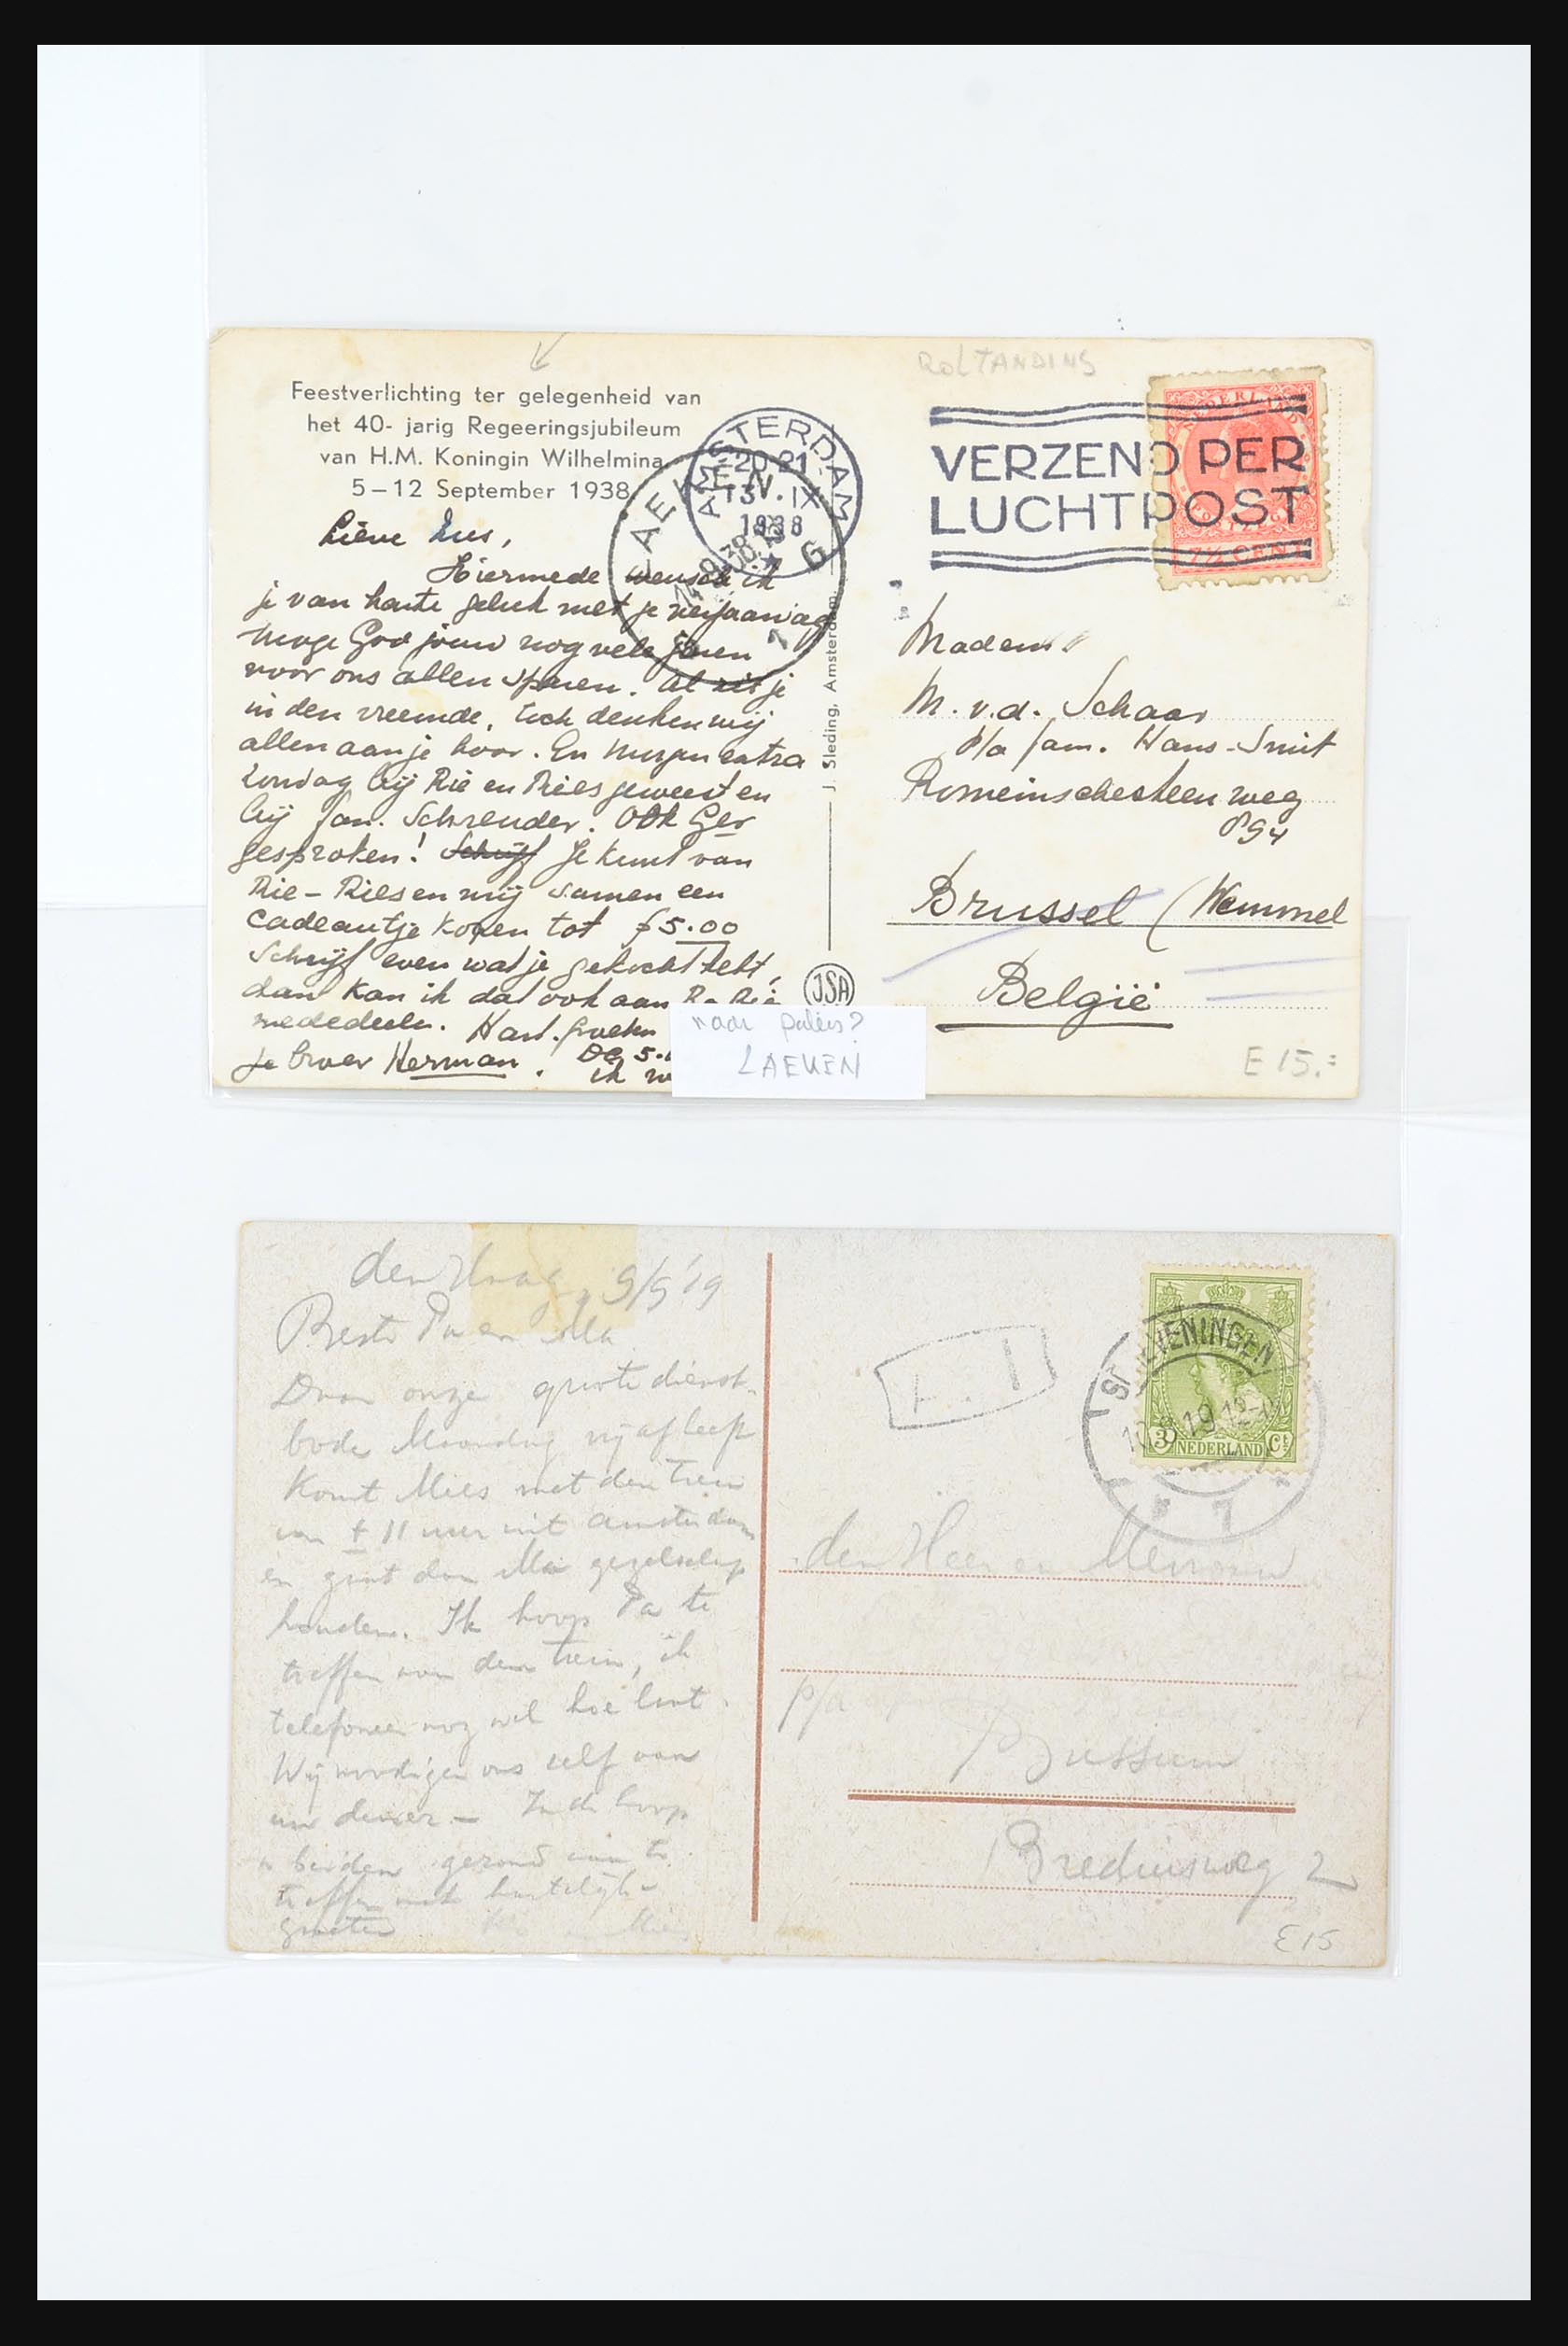 ROLTANDING
Feestverlichting ter gelegenheid van
het 40- jarig Regeeringsjubileum
van H.M. Koningin Wilhelmina
5–12 September 1938
AMSTERDAM
20-21
13.IX
1938
LAEKEN
VERZEND PER
LUCHTPOST
NEDERLAND
7½ CENT
Lieve
Hiermede wensch ik
je van harte geluk met je verjaardag
Moge God jouw nog vele jaren
voor ons allen sparen. Al zit je
in den vreemde, toch denken wij
allen aan je hoor. En extra
Zondag bij Rie en Ries geweest en
bij fam. Schreuder. Ook Ger
gesproken! Schrijf Je kunt van
Rie – Ries en mij samen een
cadeautje kopen tot f 5.00
Schrijf even wat je gekocht hebt,
dan kan ik dat ook aan
mededeelen. Hart. groeten
je broer Herman.
ik
J. Sleding, Amsterdam.
JSA
M. v.d. Schaar
p/a fam. Hans-Smit
Romeinschesteenweg
Brussel (Wemmel
België
naar paleis?
LAEKEN
E 15.=
den Haag, 9/9 '19
Beste Pa en Ma
Daar onze groote dienst-
bode Maandag vrijaf heeft
komt Mies met den trein
van ± 11 uur uit Amsterdam
en gaat dan Ma gezelschap
houden. Ik hoop Pa te
treffen van den trein, ik
telefoneer nog wel hoe laat.
Wij noodigen ons zelf aan
diner – In de hoop
beiden gezond aan te
treffen met hartelijke
groeten
NEDERLAND
3 Ct
19 12-
1
den Heer en Mevrouw
p/a
Bussum
Brediusweg 2
E 15